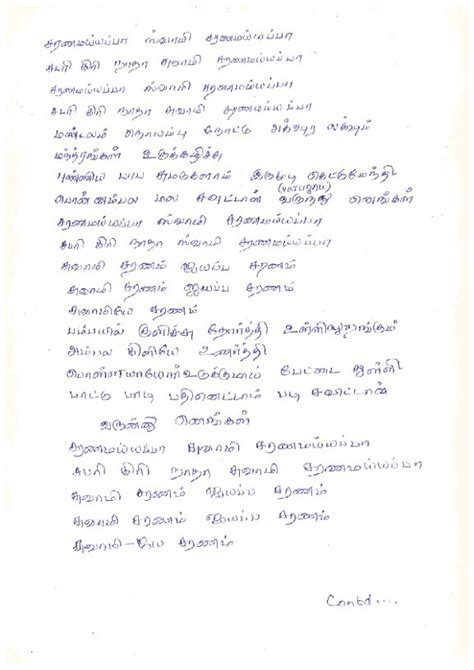 சரணமய்யப்பா ஸ்வாமி சரணமய்யப்பா
சபரி கிரி நாதா சுவாமி சரணமய்யப்பா
சரணமய்யப்பா ஸ்வாமி சரணமய்யப்பா
சபரி கிரி நாதா சுவாமி சரணமய்யப்பா
மண்டலம் நொயம்பு நோட்டு லக்ஷம்
மந்த்ரங்கள் உருக்கழிச்சு
புண்ணிய பாப சுமடுகளாம் இருமுடி கெட்டுமேந்தி
பொன்னம்பல மல சவுட்டான் (varunnu) வருந்நு ஞெங்கள்
சரணமய்யப்பா ஸ்வாமி சரணமய்யப்பா
சபரி கிரி நாதா ஸ்வாமி சரணமய்யப்பா
சுவாமி சரணம் ஐயப்ப சரணம்
சுவாமி சரணம் ஐயப்ப சரணம்
சுவாமியே சரணம்
பம்பயில் குளிச்சு தோர்த்தி உள்ளிலுறங்கும்
அம்பல கிளியே உணர்த்தி
பேட்டை துள்ளி
பாட்டு பாடி பதினெட்டாம் படி சவுட்டான்
வருந்நு ஞெங்கள்
சரணமய்யப்பா சுவாமி சரணமய்யப்பா
சபரி கிரி நாதா சுவாமி சரணமய்யப்பா
சுவாமி சரணம் ஐயப்ப சரணம்
சுவாமி சரணம் ஐயப்ப சரணம்
சுவாமி-யே சரணம்
Contd....